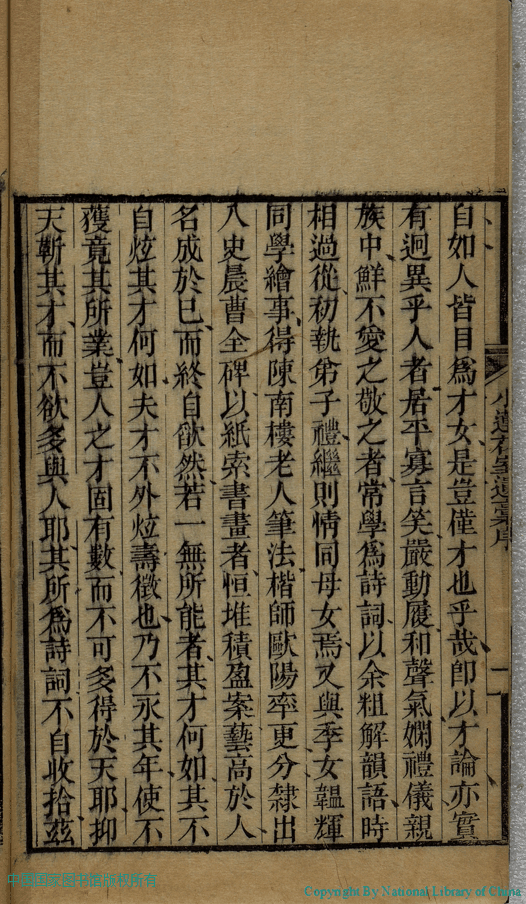 自如人皆目爲才女是豈僅才也乎哉卽以才論亦實
有迥異乎人者居平寡言笑嚴動履和聲氣嫻禮儀親
族中鮮不愛之敬之者常學爲詩詞以余粗解韻語時
相過從初執弟子禮繼則情同母女焉又與季女韞輝
同學繪事得陳南樓老人筆法楷師歐陽率更分隸出
入史晨曹全碑以紙索書畫者恒堆積盈案藝高於人
名成於已而終自欿然若一無所能者其才何如其不
自炫其才何如夫才不外炫壽徵也乃不永其年使不
獲竟其所業豈人之才固有數而不可多得於天耶抑
天靳其才而不欲多與人耶其所爲詩詞不自收拾茲
遺稾序
一
中國國家圖書館版權所有
Copyright By National Library of China